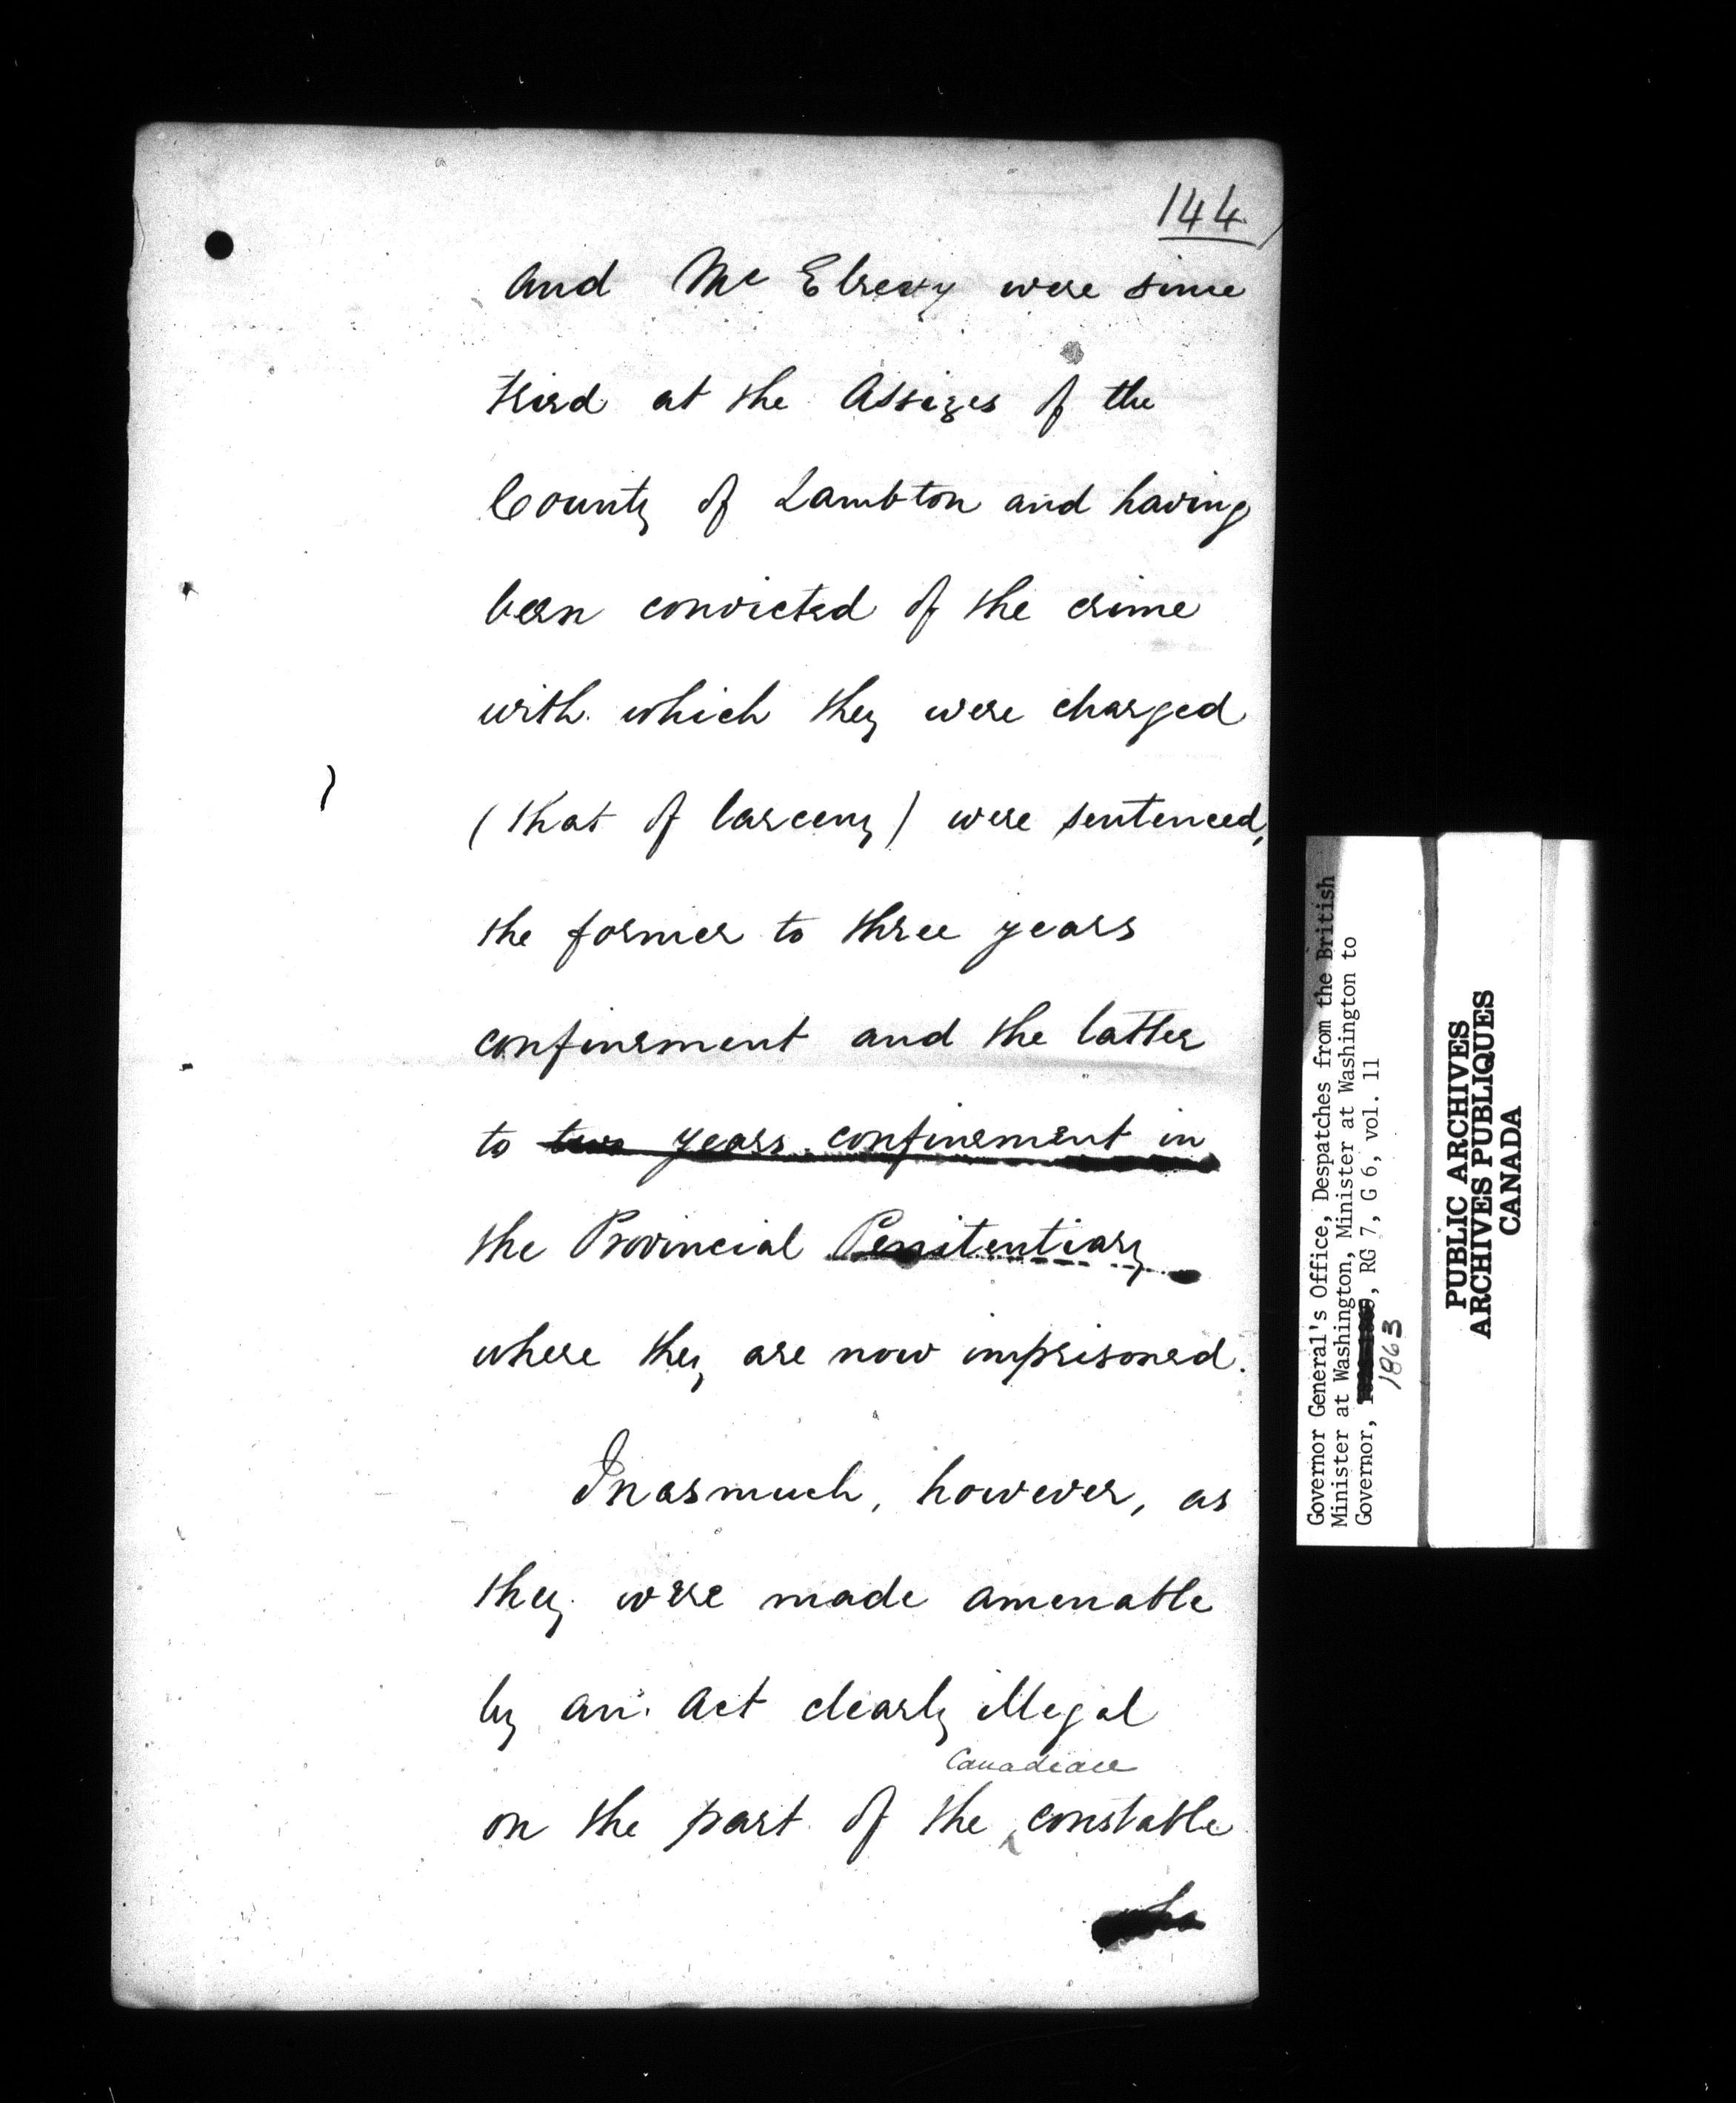 144
and Mc Elrevy were since
tried at the Assizes of the
County of Lambton and having
been convicted of the crime
with which they were charged
(that of larceny) were sentenced,
the former to three years
confinement and the latter
to two years confinement in
the Provincial Penitentiary
where they are now imprisoned.
Inasmuch, however, as
they were made amenable
by an act clearly illegal
Canadian
on the part of the ^ constable
who
Governor General's Office, Despatches from the British
Minister at Washington, Minister at Washington to
Governor, , RG 7, G 6, vol. 11
1863
PUBLIC ARCHIVES
ARCHIVES PUBLIQUES
CANADA